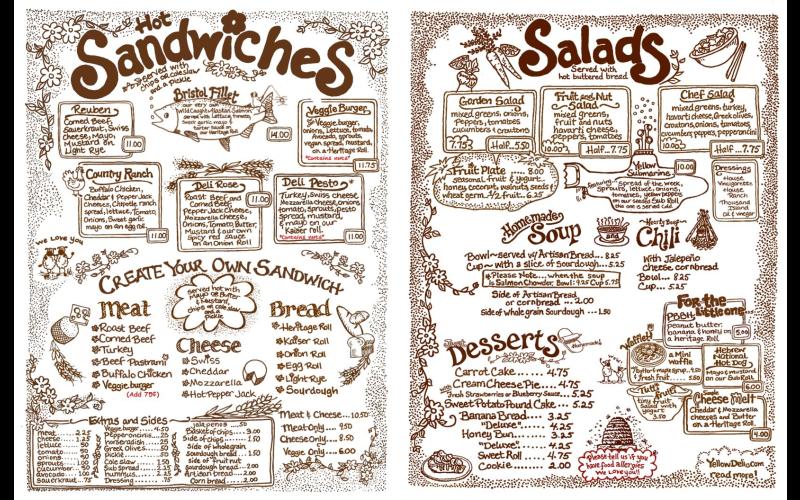 Hot
Sandwiches
Served with
chips or coleslaw
and a pickle
Reuben
Corned Beef,
Sauerkraut, Swiss
cheese, Mayo,
Mustard on
Light Rye
11.00
Bristol Fillet
our very own
Wild Caught Alaskan Salmon
served with Lettuce, tomato,
Sweet garlic mayo
tartar sauce on
our Heritage Roll
14.00
Veggie Burger
Veggie burger,
onions, Lettuce, tomato,
Avocado, sprouts,
vegan spread, mustard,
on a Heritage Roll
*Contains nuts*
11.75
Country Ranch
Buffalo Chicken,
Cheddar & Pepper Jack
Cheeses,
spread, lettuce, Tomato,
Onions, Sweet garlic
mayo on an egg roll
11.00
Deli Rose
Roast Beef and
Corned Beef,
Pepper Jack Cheese,
Mozzarella Cheese,
Onions, Tomato, Butter,
Mustard & our own
spicy red sauce
on an Onion Roll
11.00
Deli Pesto
Turkey, Swiss cheese,
Mozzarella cheese, onions
tomato, sprouts, pesto
spread, mustard,
& mayo on our
Kaiser roll.
*Contains nuts*
11.00
we love you
Create Your Own Sandwich
served hot with
Mayo or Butter
& Mustard
chips or cole slaw
and a
Pickle
Meat
Roast Beef
Corned Beef
Turkey
Beef Pastrami
Buffalo Chicken
Veggie burger
(Add 75¢)
Cheese
Swiss
Cheddar
Mozzarella
Hot Pepper Jack
Bread
Heritage Roll
Kaiser Roll
Onion Roll
Egg Roll
Light Rye
Sourdough
Meat & Cheese...10.50
Meat Only...9.50
Cheese Only...8.50
Veggie Only...6.00
Extras and Sides
meat 2.25
cheese 1.25
lettuce .50
tomato
onions
sprouts 1.00
cucumber .50
avocado
sauerkraut .75
Veggie burger
Pepperoncinis .25
horseradish
Greek Olives
Pickle
cole slaw
Sub Spread
hummus
Dressing .75
jalapenos .50
Basket of chips 3.00
Side of chips 1.50
Side of whole grain
Sourdough bread 1.50
Side of Fruit Nut
sourdough bread 2.00
Artisan bread 2.00
Corn bread 2.00
Salads
Served with
hot buttered bread
Garden Salad
mixed greens, onions,
Peppers, tomatoes
cucumbers & croutons
7.75
Half...5.50
Fruit and Nut
Salad
mixed greens,
fruit and nuts
havarti cheese
peppers, tomatoes
10.00
Half...7.75
Chef Salad
mixed greens, turkey,
havarti cheese, Greek olives,
croutons, onions, tomatoes,
cucumber, peppers, pepperoncini
10.00
Half...7.75
Fruit Plate.....8.00
seasonal fruit & yogurt
honey coconut, walnuts, seeds
wheat germ. 1/2 fruit..6.25
Yellow
Submarine
10.00
Featuring spread of the week,
sprouts, lettuce, onions,
tomatoes, yellow peppers
on our seeded Sub Roll
Dressings
House
Vinaigrette
House
Ranch
Thousand
Island
oil & vinegar
Homemade
Soup
and
Hearty Deep
Chili
Bowl~served w/ Artisan Bread...8.25
Cup~ with a slice of Sourdough...5.25
Please Note...when the soup
is Salmon Chowder Bowl: 9.25 Cup 5.75
Side of Artisan Bread
or cornbread...2.00
Side of whole grain Sourdough...1.50
With Jalapeño
cheese cornbread
Bowl....8.25
Cup....5.25
Desserts
Carrot Cake.....4.75
Cream Cheese Pie....4.75
with Strawberries or Blueberry Sauce....5.25
Sweet Potato Pound Cake...5.25
Banana Bread......3.25
"Deluxe"......4.25
Honey Bun......3.25
"Deluxe"......4.25
Sweet Roll.....4.75
Cookie.........2.00
For the
little one...
PBBH
peanut butter,
banana & honey on
a heritage Roll
5.00
Waffle
a Mini
Waffle
w/ butter & maple syrup..4.50
w/ fresh fruit...5.50
Hebrew
National
Hot Dog
Mayo & mustard
on our Sub Roll
6.00
tiny fruit
with
yogurt
3.50
Simple
Cheese Melt
Cheddar & Mozzarella
cheeses and Butter
on a Heritage Roll.
4.00
Please tell us if you
have food allergies
We love you!!
YellowDeli.com
read more!